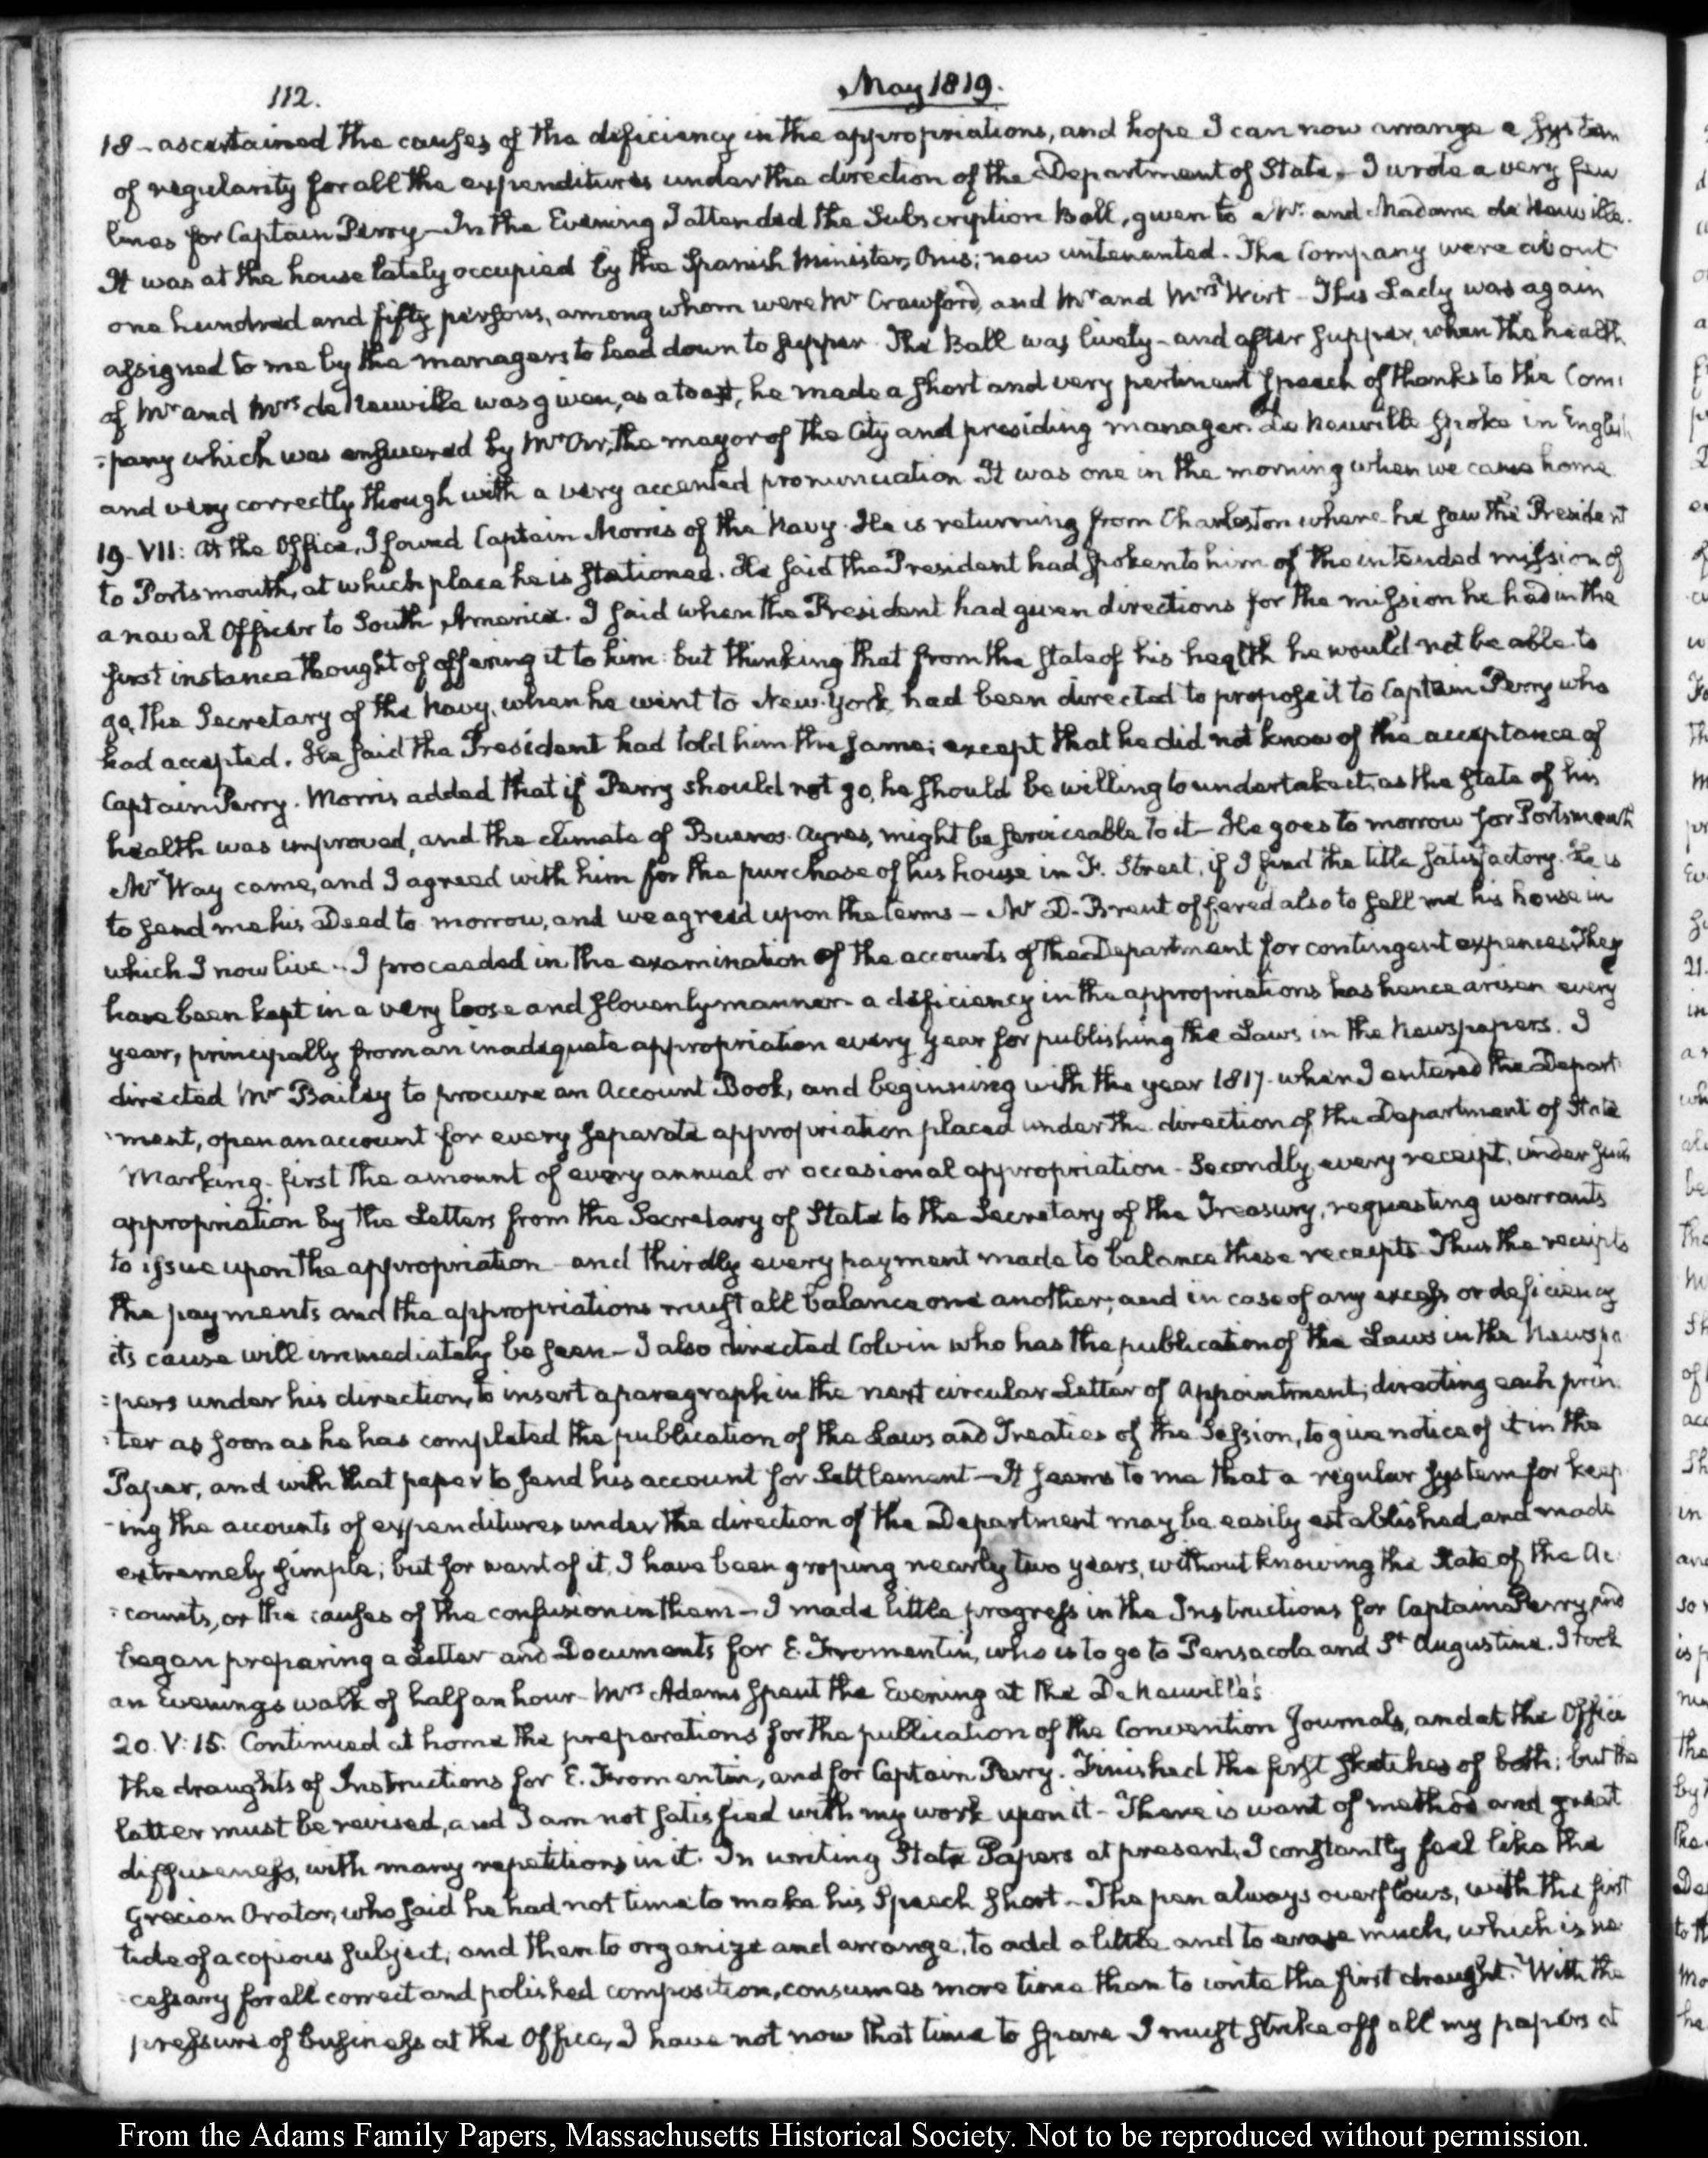 112.
May 1819.
18 - ascertained the causes of the deficiency in the appropriations, and hope I can now arrange a system
of regularity for all the expenditures under the direction of the Department of State. - I wrote a very few
lines for Captain Perry - In the Evening I attended the Subscription Ball, given to Mr. and Madame de Neuville.
It was at the house lately occupied by the Spanish Minister, Onis; now untenanted. The Company were about
one hundred and fifty persons, among whom were Mr Crawford, and Mr and Mrs Wirt - This Lady was again
assigned to me by the managers to lead down to supper. The Ball was lively - and after supper, when the health
of Mr and Mrs de Neuville was given, as a toast, he made a short and very pertinent speech of thanks to the Com:
:pany which was answered by Mr Orr, the mayor of the City and presiding manager. De Neuville spoke in English
and very correctly though with a very accented pronunciation. It was one in the morning when we came home.
19. VII: At the Office, I found Captain Morris of the Navy. He is returning from Charleston where he saw the President
to Portsmouth, at which place he is stationed. He said the President had spoken to him of the intended mission of
a naval Officer to South America. I said when the President had given directions for the mission he had in the
first instance thought of offering it to him: but thinking that from the state of his health he would not be able to
go, the Secretary of the Navy, when he went to New-York, had been directed to propose it to Captain Perry who
had accepted. He said the President had told him the same; except that he did not know of the acceptance of
Captain Perry. Morris added that if Perry should not go, he should be willing to undertake it, as the state of his
health was improved, and the climate of Buenos-Ayres, might be serviceable to it - He goes to morrow for Portsmouth
Mr Way came, and I agreed with him for the purchase of his house in F. Street, if I find the title satisfactory. He is
to send me his Deed to morrow, and we agreed upon the terms - Mr D. Brent offered also to sell me his house in
which I now live - I proceeded in the examination of the accounts of the Department for contingent expences. They
have been kept in a very loose and slovenly manner - a deficiency in the appropriations has hence arisen every
year, principally from an inadequate appropriation every year for publishing the Laws in the Newspapers. I
directed Mr Bailey to procure an Account Book, and beginning with the year 1817. when I entered the Depart
:ment, open an account for every separate appropriation placed under the direction of the Department of State
Marking - first the amount of every annual or occasional appropriation - Secondly, every receipt, under such
appropriation by the Letters from the Secretary of State to the Secretary of the Treasury, requesting warrants
to issue upon the appropriation - and thirdly every payment made to balance these receipts. Thus the receipts
the payments and the appropriations must all balance one another; and in case of any excess or deficiency
its cause will immediately be seen - I also directed Colvin who has the publication of the Laws in the Newspa
:pers under his direction, to insert a paragraph in the next circular Letter of Appointment, directing each prin
:ter as soon as he has completed the publication of the Laws and Treaties of the Session, to give notice of it in the
Paper, and with that paper to send his account for Settlement - It seems to me that a regular system for keep
-ing the accounts of expenditures under the direction of the Department may be easily established, and made
extremely simple; but for want of it, I have been groping nearly two years, without knowing the State of the Ac
:counts, or the causes of the confusion in them - I made little progress in the Instructions for Captain Perry, and
began preparing a Letter and Documents for E. Fromentin, who is to go to Pensacola and St Augustine. I took
an Evening's walk of half an hour. Mrs Adams spent the Evening at the De Neuville's.
20. V: 15. Continued at home the preparations for the publication of the Convention Journals, and at the Office
the draughts of Instructions for E. Fromentin, and for Captain Perry. Finished the first sketches of both; but the
latter must be revised, and I am not satisfied with my work upon it - There is want of method and great
diffuseness, with many repetitions in it. In writing State Papers at present, I constantly feel like the
Grecian Orator, who said he had not time to make his Speech short - The pen always overflows, with the first
tide of a copious subject, and then to organize and arrange, to add a little and to erase much, which is ne
:cessary for all correct and polished composition, consumes more time than to write the first draught. With the
pressure of business at the Office, I have not now that time to spare. I must strike off all my papers at
From the Adams Family Papers, Massachusetts Historical Society. Not to be reproduced without permission.